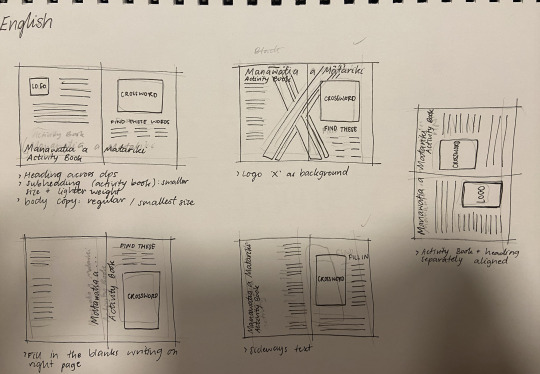 English
LOGO
CROSSWORD
FIND THESE WORDS
Activity Book
Manawatia a Matariki
Activity Book
> Heading across dps
> subheading (activity book): smaller
size + lighter weight
> body copy: regular / smallest size
Manawatia a Matariki
Activity Book
CROSSWORD
FIND THESE
> Logo 'X' as background
Manawatia a Matariki
Activity Book
CROSSWORD
LOGO
> Activity Book + heading
separately aligned
FIND THESE
Manawatia a
Activity Book
CROSSWORD
> Fill in the blanks writing on
right page
Manawatia a Matariki
Activity Book
CROSSWORD
FILL IN
> Sideways text